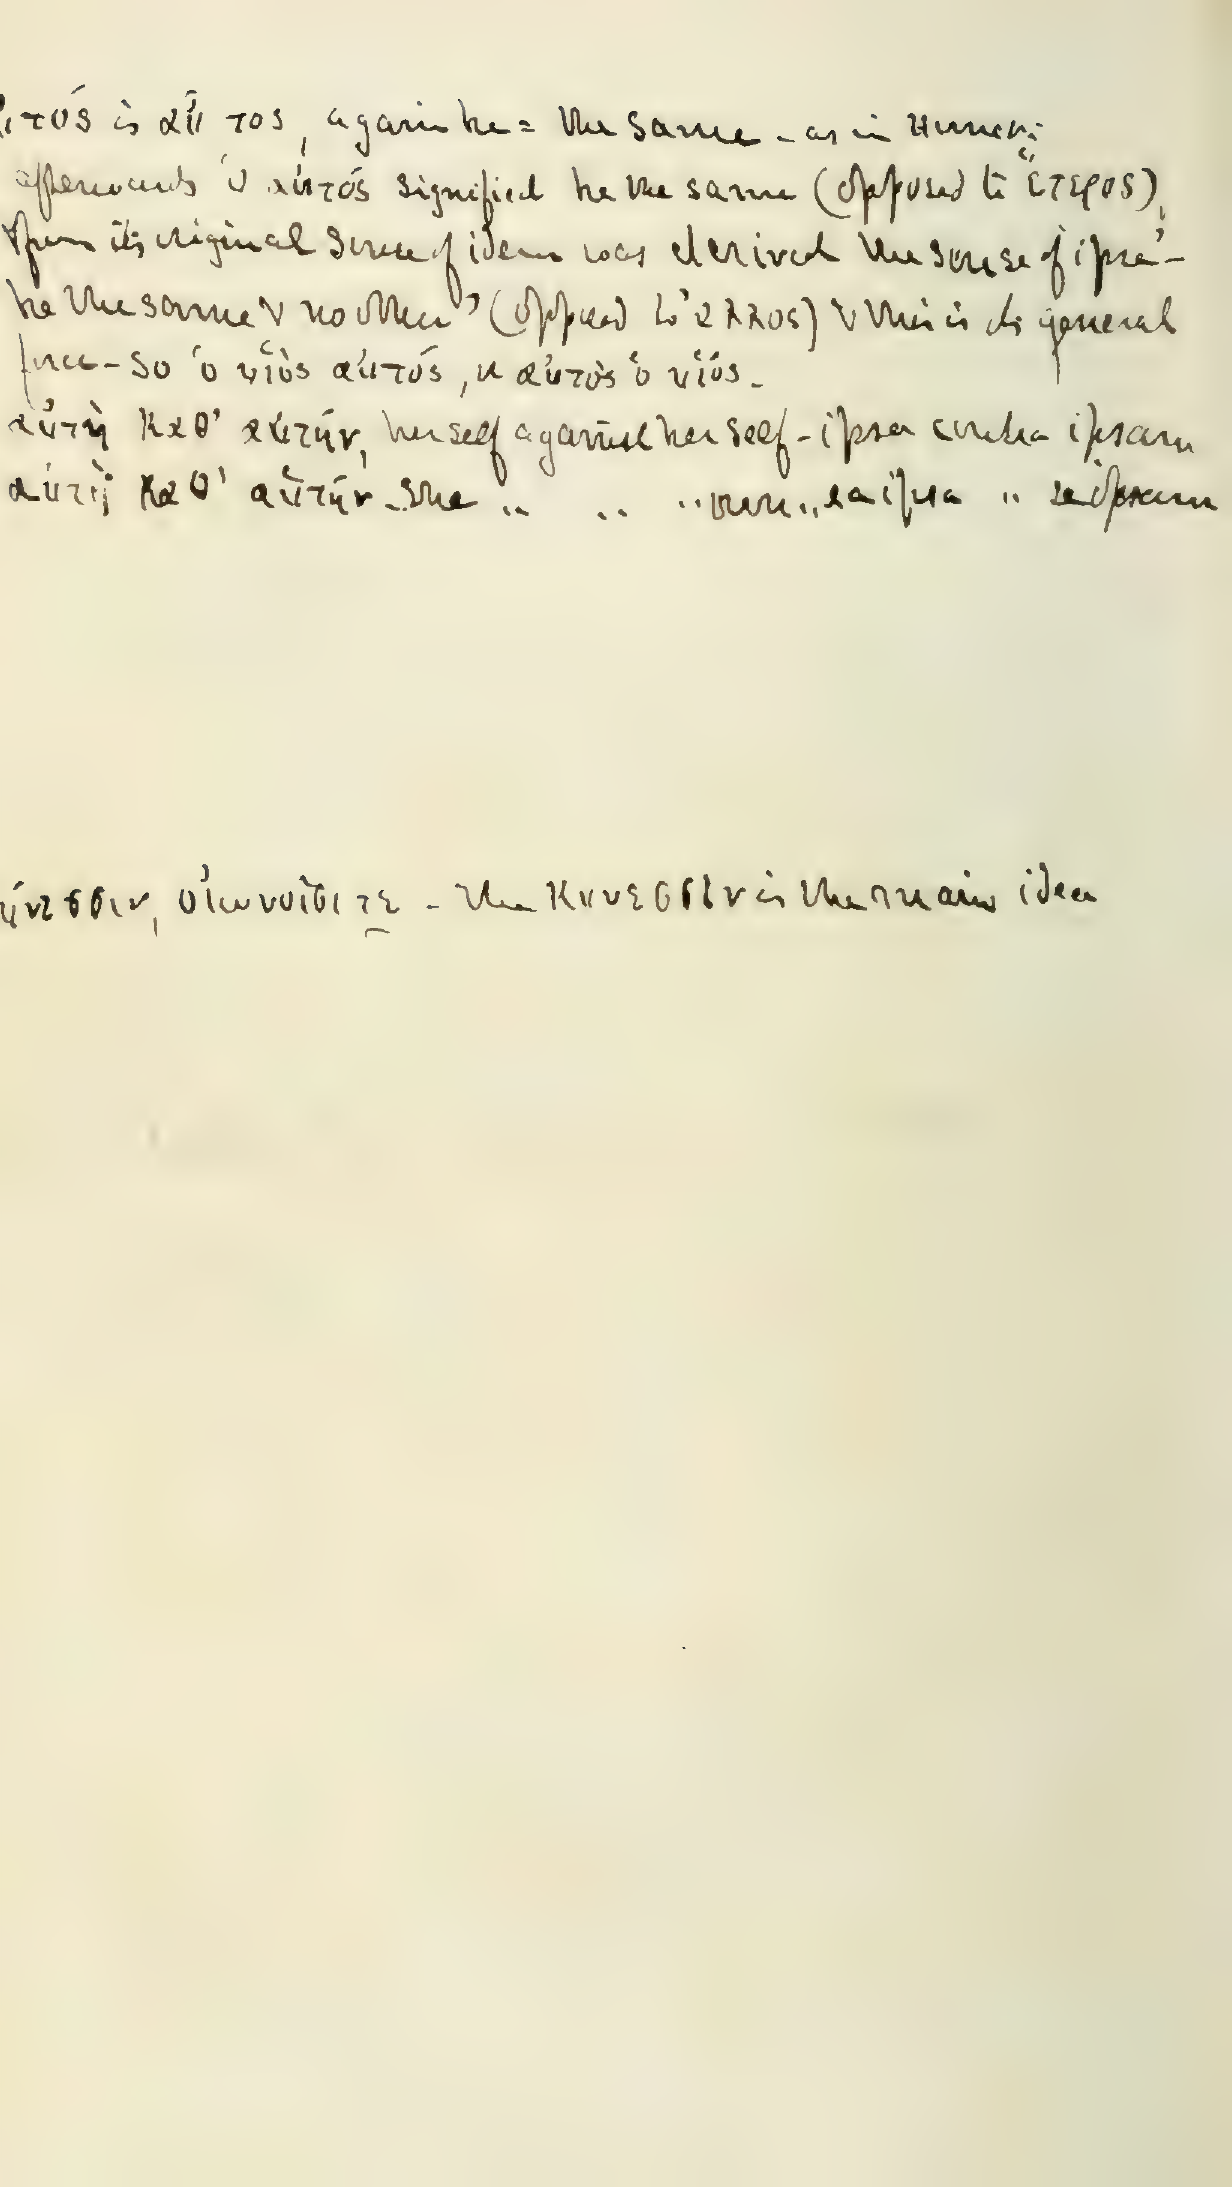 υτός is αὖ τος, again he = the same - as in Homer;
afterwards ὁ αὐτός signified he the same (opposed to ἕτερος),
from its original sense of idem was derived the sense of ipse'-
he the same & no other' (opposed to ἄλλος) & this is its general
force - So ὁ υἱὸς αὐτός, αὐτὸς ὁ υἱός -
αὐτὴ καθ' αὑτήν, herself against herself - ipsa contra ipsam
αὐτὴ καθ' αὑτήν - she " . . " " ea ipsa " se ipsam
ύνεσσιν, οἰωνοῖσί τε - the κυνεσσιν is the main idea